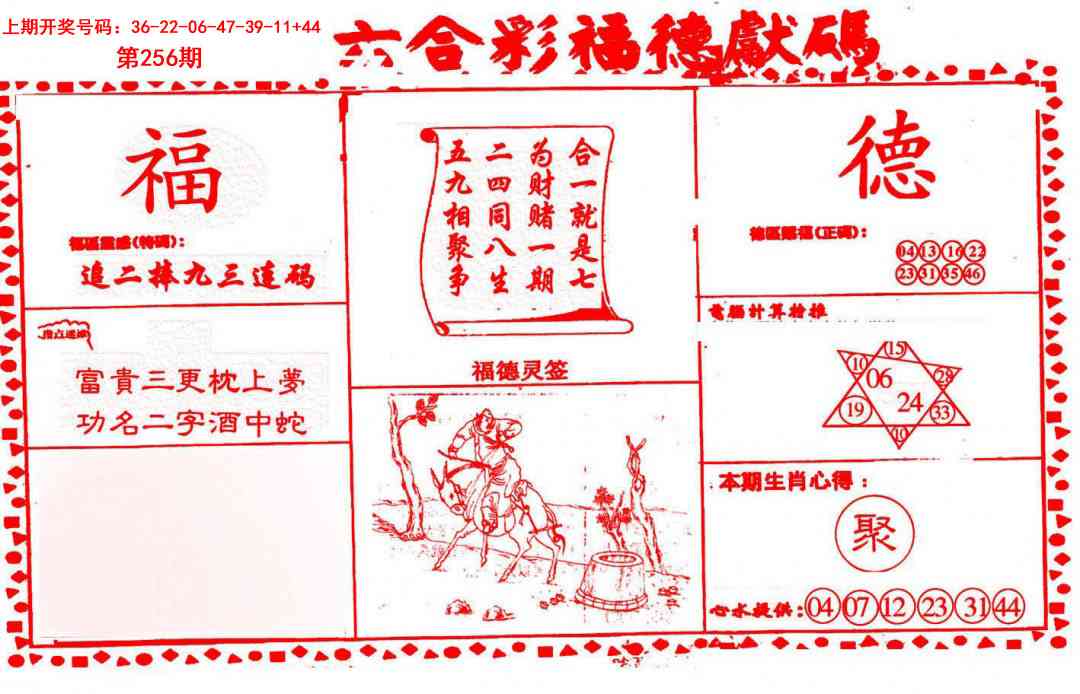 上期开奖号码：36-22-06-47-39-11+44
第256期
六合彩福德獻碼
福
福區靈感(特碼)：
追二捧九三连码
指点迷津
富貴三更枕上夢
功名二字酒中蛇
合一就是七
为财赌一期
二四同八生
五九相聚争
福德灵签
德
德區賜福(正碼)：
04 13 16 22
23 31 35 46
電腦計算檢推
15
10 06 28
19 24 33
10
本期生肖心得：
聚
心水提供：04 07 12 23 31 44